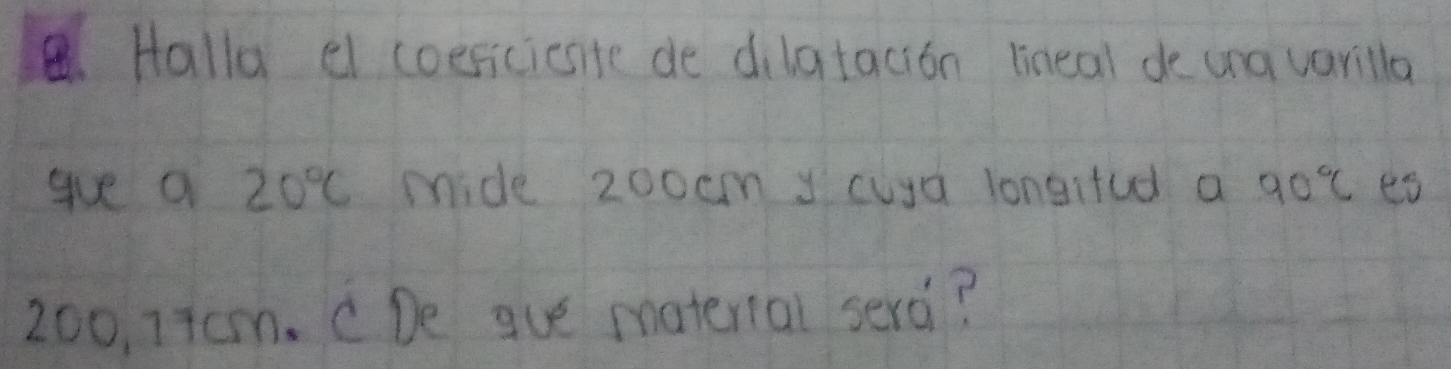 8. Halla el coeficiente de dilatación lineal de una varilla
que a 20°C mide 200cm y cuya longitud a 90°C es
200,17cm. ¿De que material será?